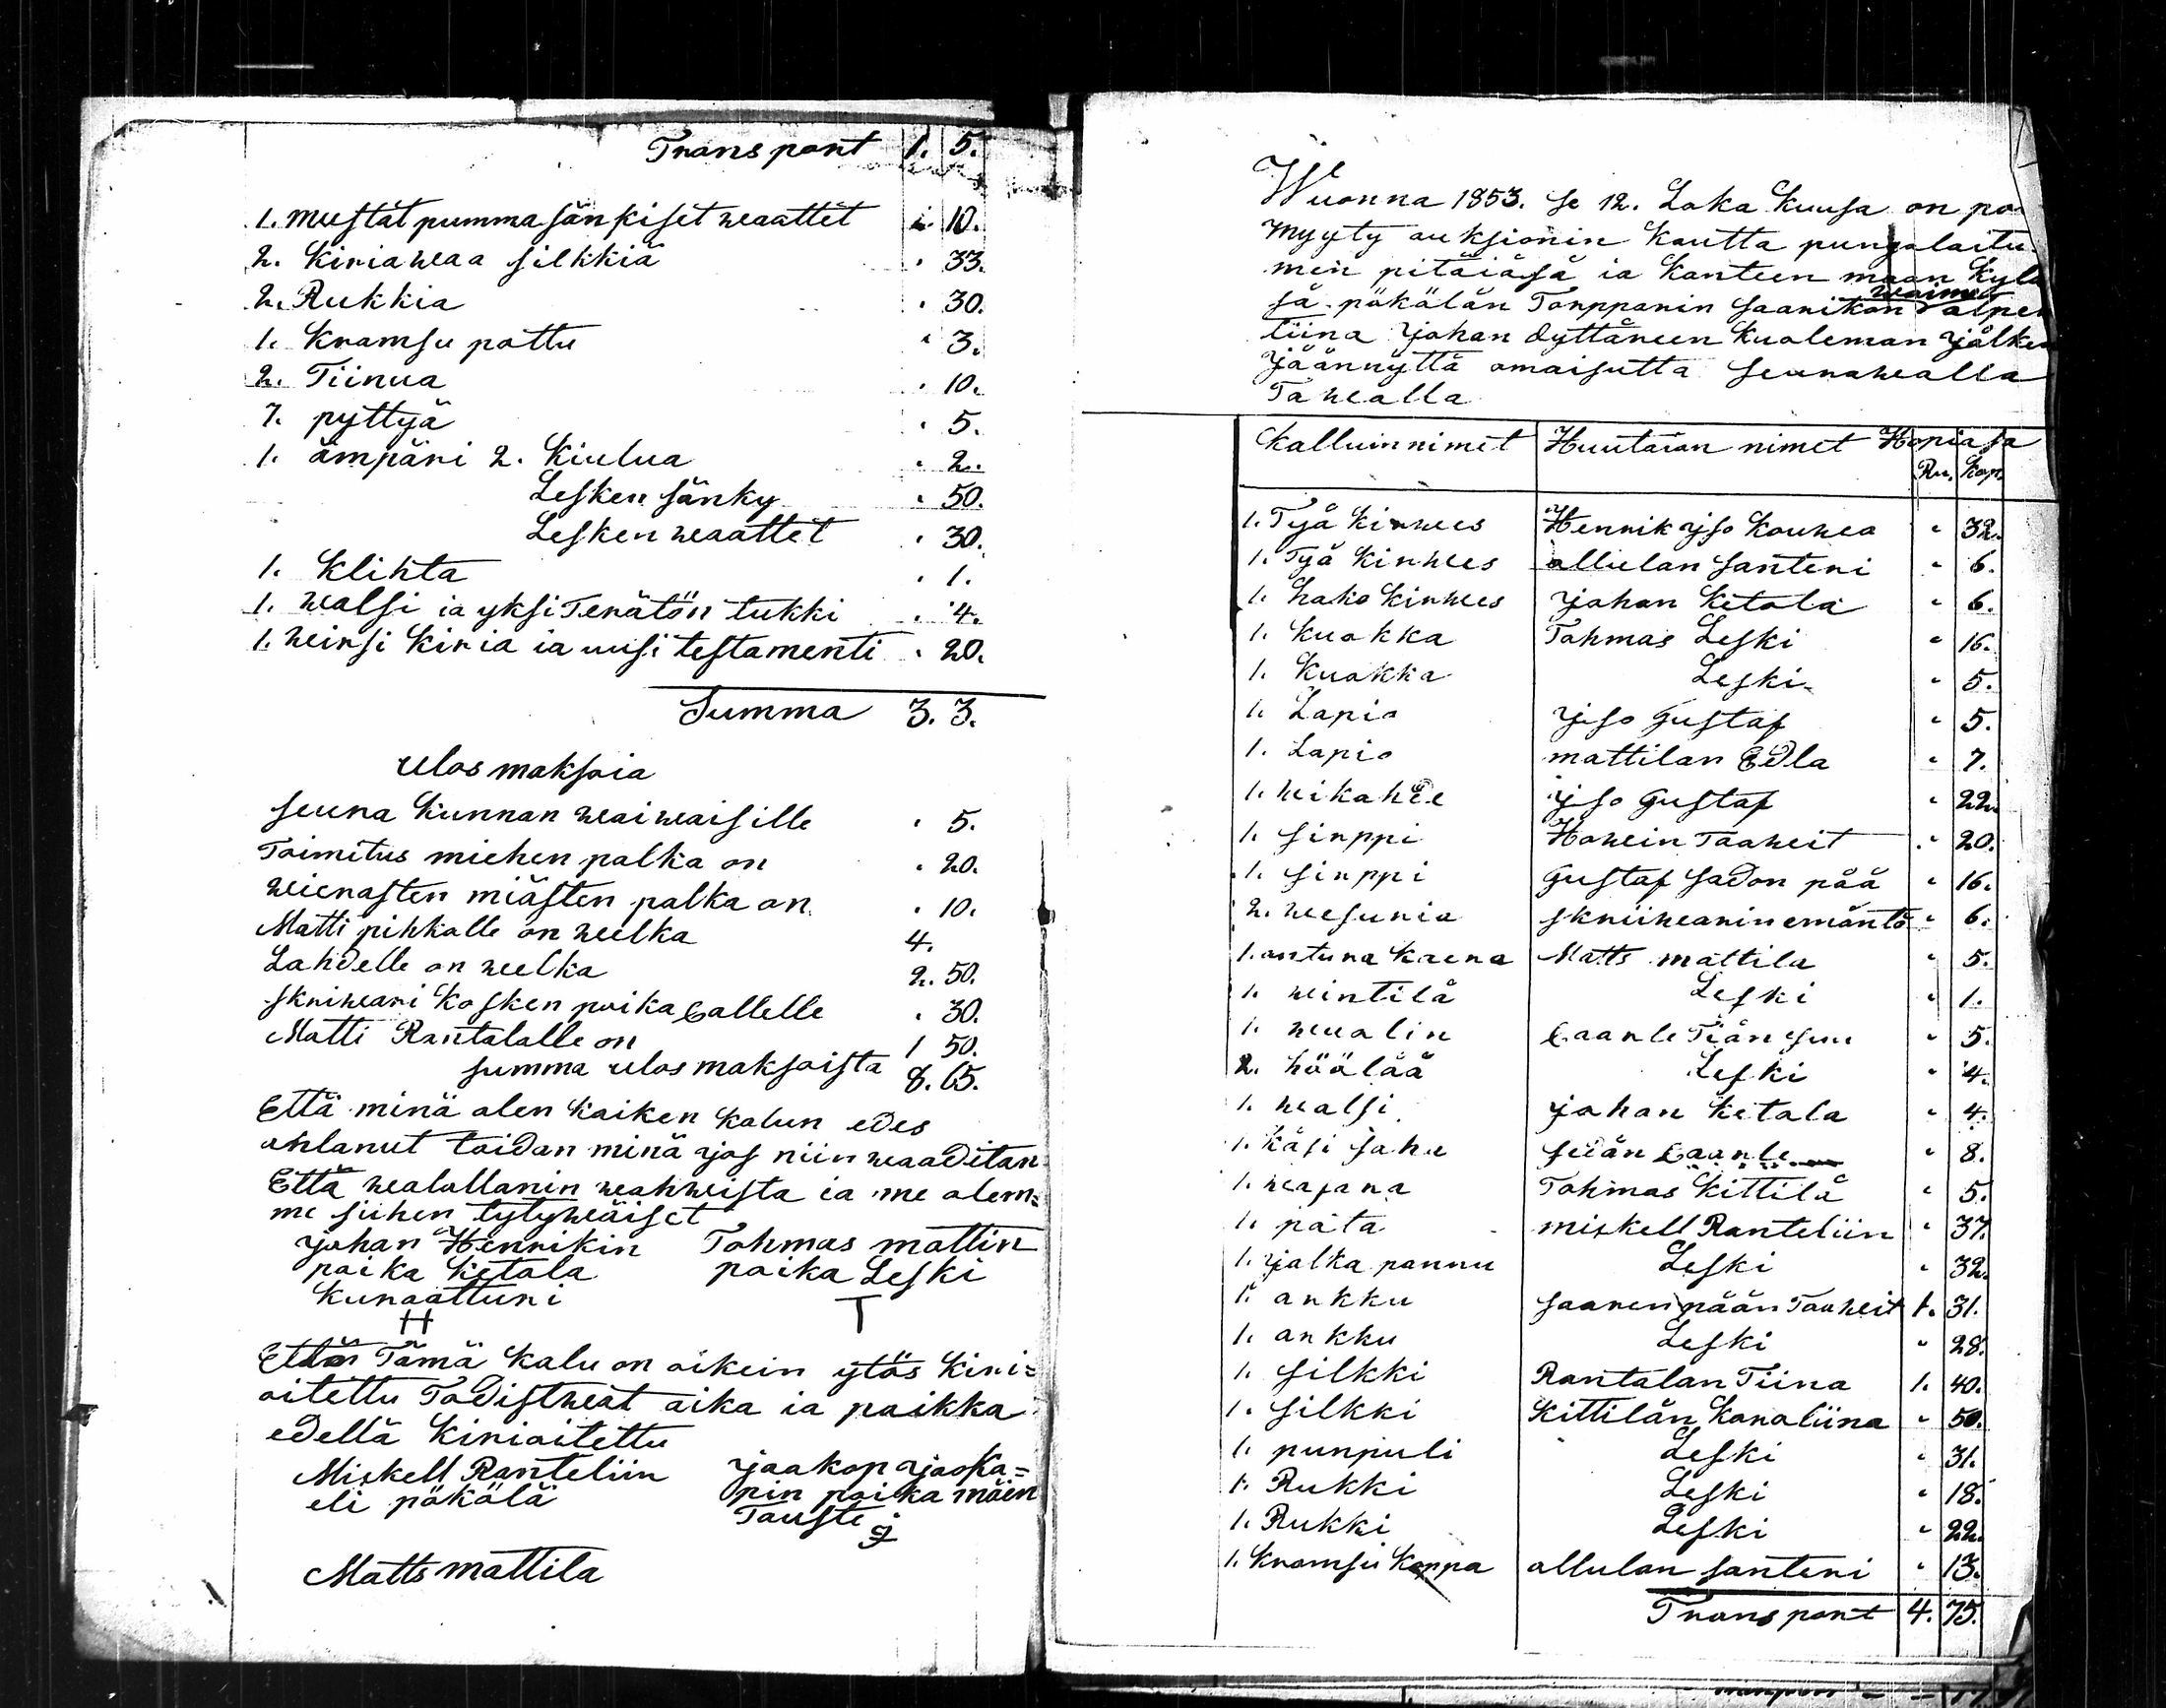 Transport 1. 5.
1. mustat pummasänkiset weaattet " 10.
2. Kiriaweaa silkkiä " 33.
2. Rukkia " 30.
1. Kramsu pottu " 3.
2. Tiinua " 10.
7. pyttyä " 5.
1. ämpäri 2. Kiulua " 2.
Lesken sänky " 50.
Lesken weaattet " 30.
1. Klihta " 1.
1. walsi ia yksi Terätön tukki " 4.
1. weirsi Kiria ia uusi testamenti " 20.
Summa 3. 3.
Ulos maksoia
seura Kunnan weaiweaisille " 5.
Toimitus miehen palka on " 20.
weierasten miästen palka on " 10.
Matti pihkalle on weelka 4.
Lahdelle on weelka 2. 50.
skriweari Kosken poika Callelle " 30.
Matti Rantalalle on 1 50.
summa ulos maksoista 8. 65.
Että minä olen Kaiken Kalun edes
ohlanut taidan minä jos niin weaaditan
Että wealallanin weahweista ia me olem=
me siihen tytyweäiset
Johan Henrikin Tohmas mattin
poika Ketola poika Leski
Kunaatturi T
H
Että Tämä Kalu on oikein ylös Kiri=
oitettu Todistweat aika ia paikka
edellä Kirioitettu
Mickell Ranteliin Jaakop Jaoka=
eli pökölä pin poika mäen
Tauste
Matts mattila
Wuonna 1853. se 12. Loka Kuusa on po
Myyty auksionin Kautta pungalaitu
men pitäiäsä ia Kanteen maan Kylä
weaimo
sä pökölän Torppanin saarikon walpen
tiina Johan dyttäreen Kuoleman Jälken
Jäännyttä omaisutta seurawealla
Tawealla
Kalluin nimet Huutaian nimet Hopiasa
Ru. Kop.
1. Työ Kirwes Henrik Jso Kouwea " 32.
1. Työ Kirwes allulan santeri " 6.
1. Hako Kirwes Johan Ketola " 6.
1. Kuokka Tohmas Leski " 16.
1. Kuokka Leski " 5.
1. Lapio Jso Gustaf " 5.
1. Lapio mattilan Edla " 7.
1. weikahte Jso Gustaf " 22.
1. sirppi Howein Taaweit " 20.
1. sirppi Gustaf sadon pää " 16.
2. weesuria skriiwearin emäntä " 6.
1. antura Kaera Matts mattila " 5.
1. weintilä Leski " 1.
1. weualin Caarle Tiänsuu " 5.
2. höölää Leski " 4.
1. wealsi Johan Ketola " 4.
1. Käsi saha siiän Caarle " 8.
1. weasara Tohmas Kittilä " 5.
1. pata mickell Ranteliin " 37.
1. Jalka pannu Leski " 32.
1. ankku saarenpään Taaweit 1. 31.
1. ankku Leski " 28.
1. silkki Rantalan Tiina 1. 40.
1. silkki Kittilän Karoliina " 50.
1. punpuli Leski " 31.
1. Rukki Leski " 18.
1. Rukki Leski " 22.
1. Kramsu Koppa allulan santeri " 13.
Transport 4. 75.